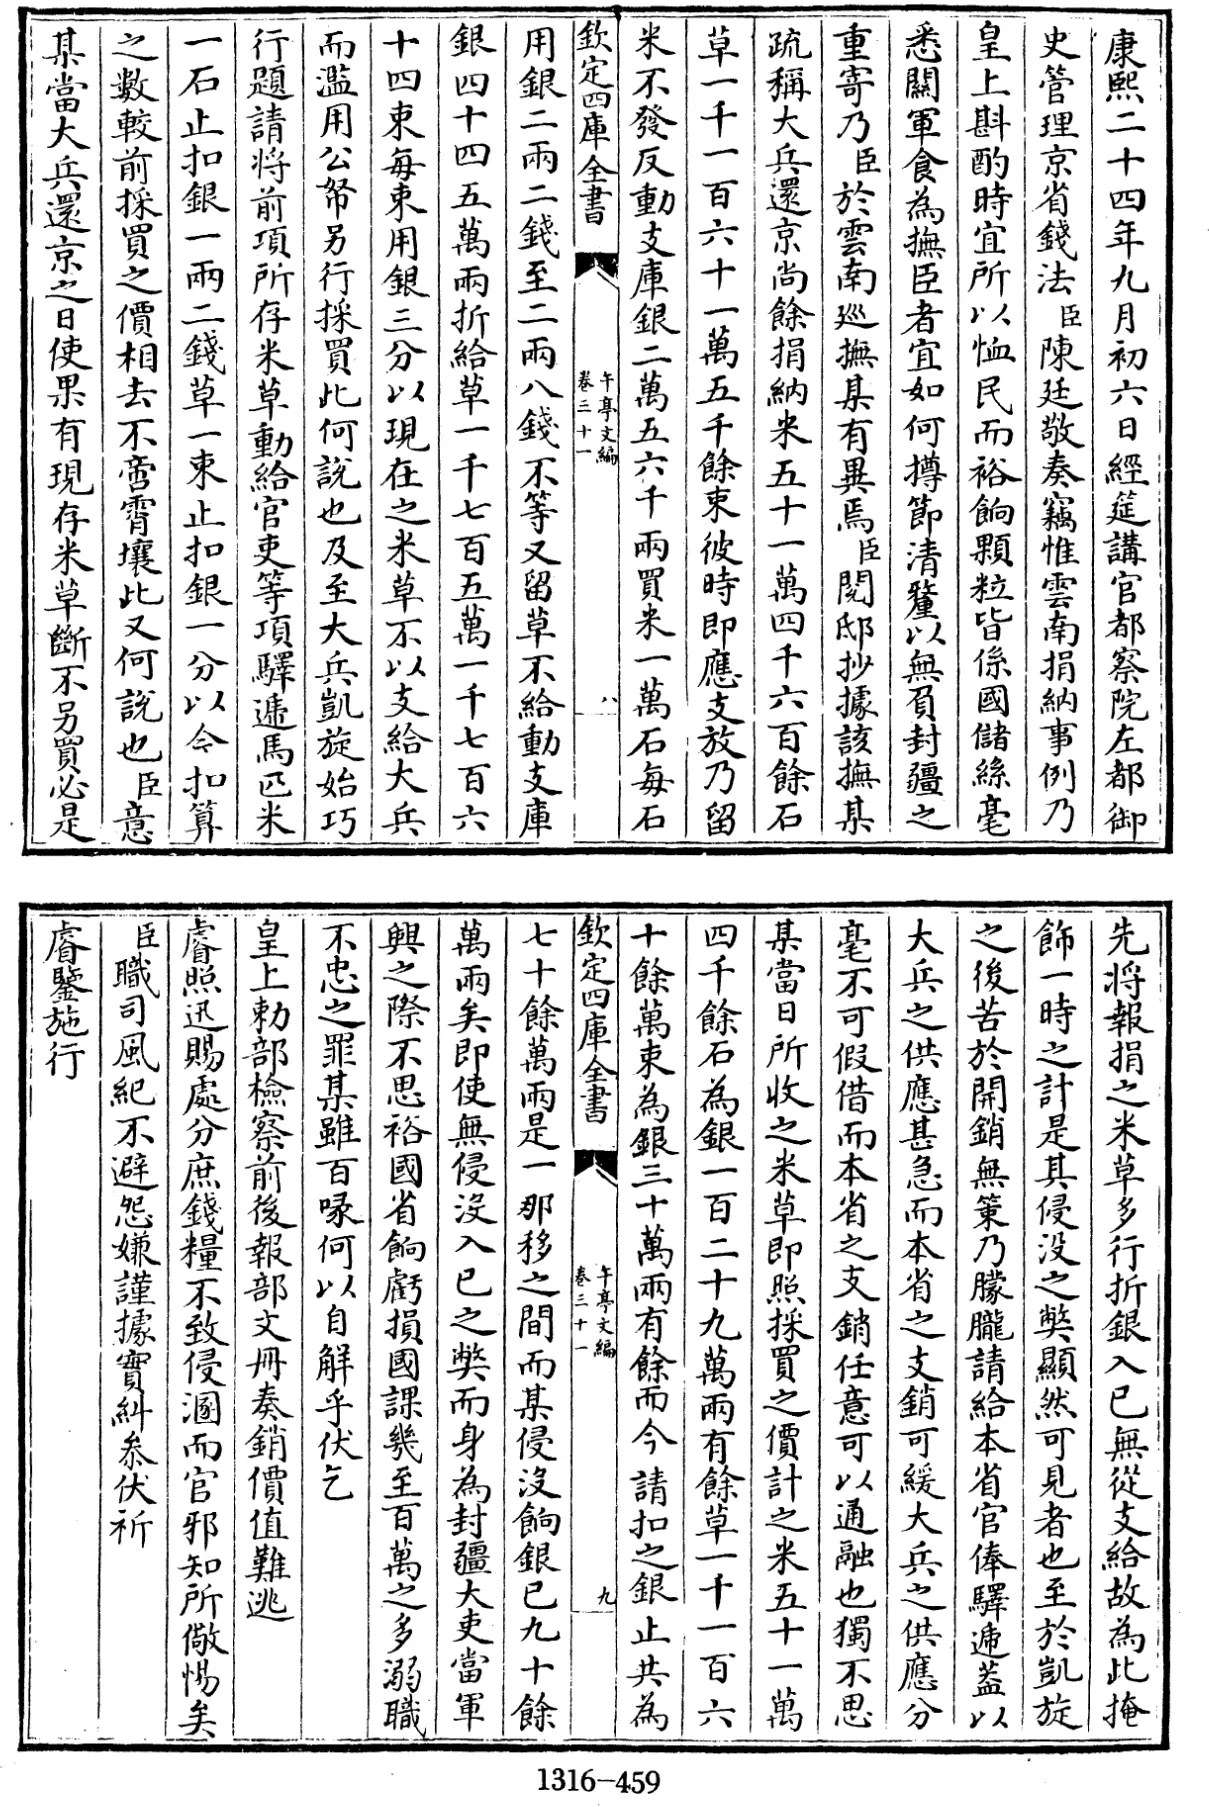 康熙二十四年九月初六日經筵講官都察院左都御
史管理京省錢法臣陳廷敬奏竊惟雲南捐納事例乃
皇上斟酌時宜所以恤民而裕餉顆粒皆係國儲絲毫
悉關軍食為撫臣者宜如何撙節清釐以無負封疆之
重寄乃臣於雲南巡撫某有異焉臣閱邸抄據該撫某
疏稱大兵還京尚餘捐納米五十一萬四千六百餘石
草一千一百六十一萬五千餘束彼時即應支放乃留
米不發反動支庫銀二萬五六千兩買米一萬石每石
欽定四庫全書
午亭文編
卷三十一
八
用銀二兩二錢至二兩八錢不等又留草不給動支庫
銀四十四五萬兩折給草一千七百五萬一千七百六
十四束每束用銀三分以現在之米草不以支給大兵
而濫用公帑另行採買此何說也及至大兵凱旋始巧
行題請將前項所存米草動給官吏等項驛遞馬匹米
一石止扣銀一兩二錢草一束止扣銀一分以今扣算
之數較前採買之價相去不啻霄壤此又何說也臣意
某當大兵還京之日使果有現存米草斷不另買必是
先將報捐之米草多行折銀入已無從支給故為此掩
飾一時之計是其侵没之弊顯然可見者也至於凱旋
之後苦於開銷無策乃朦朧請給本省官俸驛遞蓋以
大兵之供應甚急而本省之支銷可緩大兵之供應分
毫不可假借而本省之支銷任意可以通融也獨不思
某當日所收之米草即照採買之價計之米五十一萬
四千餘石為銀一百二十九萬兩有餘草一千一百六
十餘萬束為銀三十萬兩有餘而今請扣之銀止共為
欽定四庫全書
午亭文編
卷三十一
九
七十餘萬兩是一那移之間而某侵沒餉銀已九十餘
萬兩矣即使無侵沒入已之弊而身為封疆大吏當軍
興之際不思裕國省餉虧損國課幾至百萬之多溺職
不忠之罪某雖百喙何以自解乎伏乞
皇上勅部檢察前後報部文冊奏銷價值難逃
睿照迅賜處分庶錢糧不致侵溷而官邪知所儆惕矣
臣職司風紀不避怨嫌謹據實糾叅伏祈
睿鑒施行
1316-459